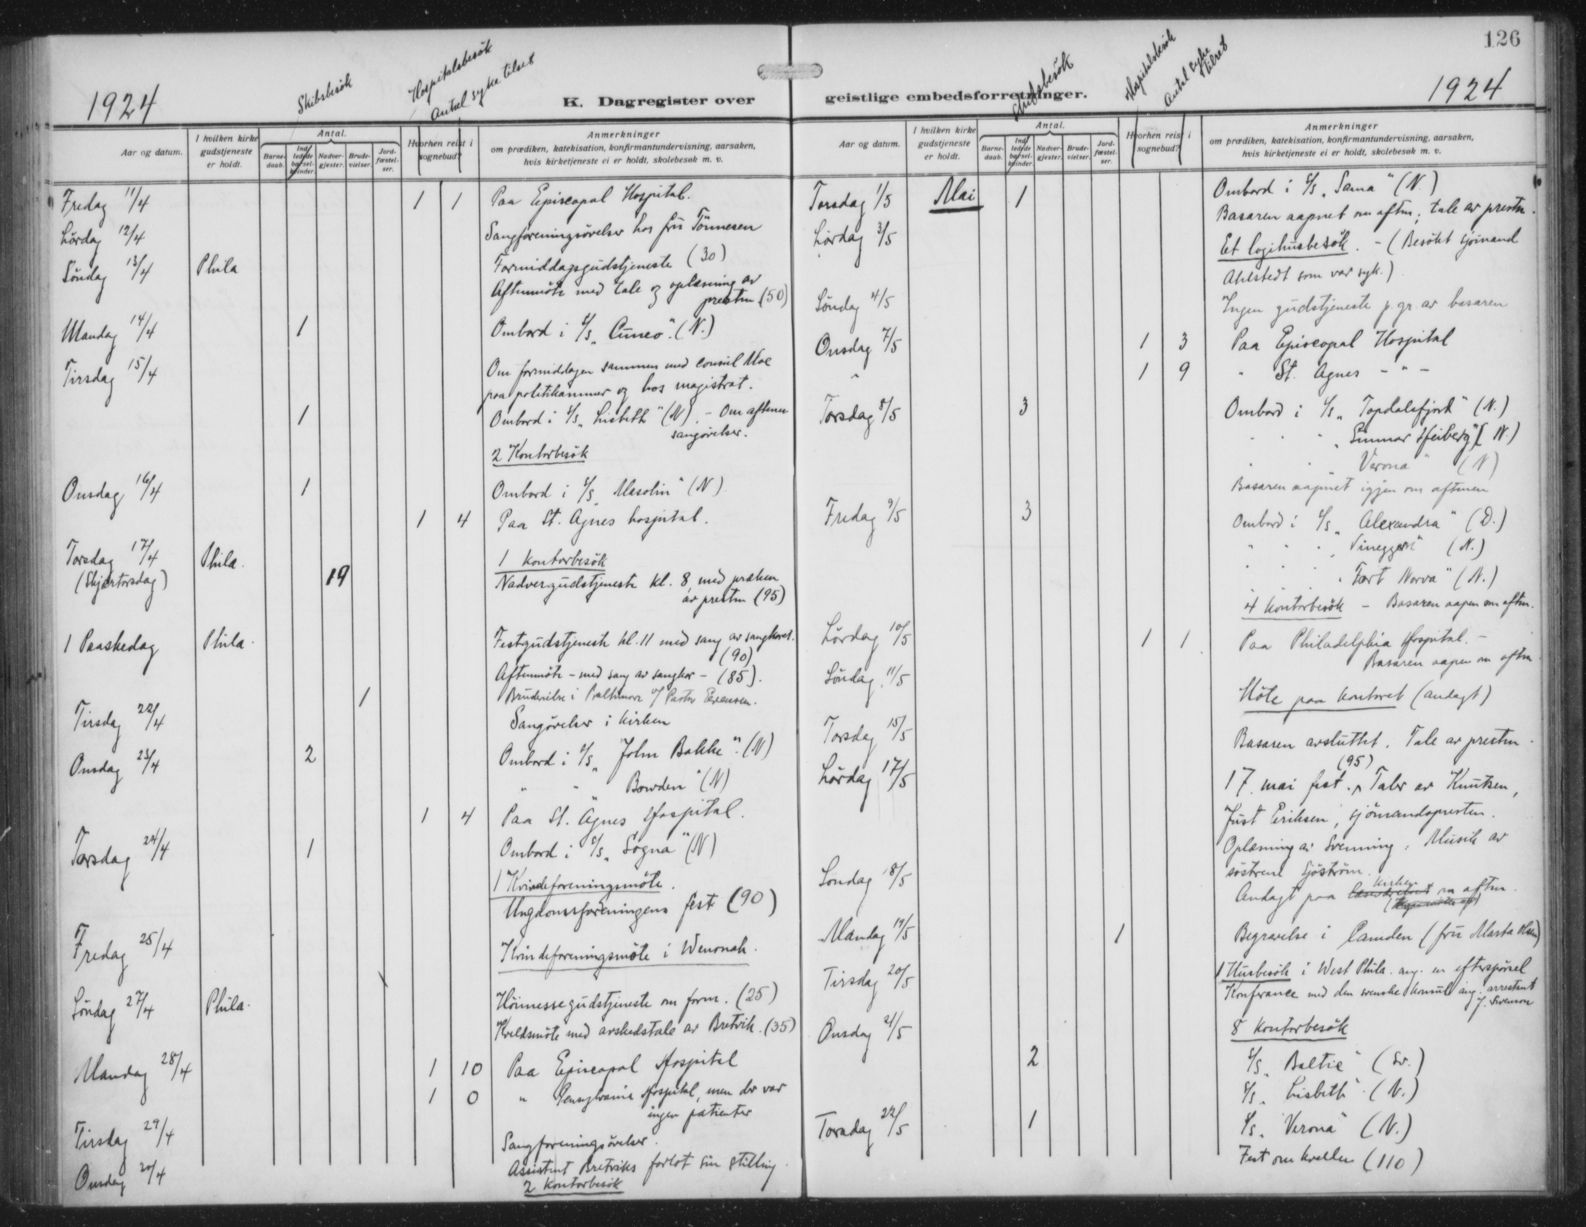 1924
Skibsbesök
Hospitalsbesök
Antal syke tilset
K. Dagregister over
Aar og datum.
I hvilken kirke gudstjeneste er holdt.
Antal.
Barne-daab.
Ind-ledede barsel-kvinder.
Nadver-gjester.
Brude-vielser.
Jord-fæstel-ser.
Hvorhen reist i sognebud?
Anmerkninger
om prædiken, katekisation, konfirmantundervisning, aarsaken,
hvis kirketjeneste ei er holdt, skolebesøk m. v.
Fredag 11/4 1 1 Paa Episcopal Hospital.
Lørdag 12/4 Sangforeningsövelser hos fru Tönnesen
Söndag 13/4 Phila Formiddagsgudstjeneste (30)
Aftenmöte med tale og oplæsning av
presten (50)
Mandag 14/4 1 Ombord i S/S „Cuneo". (N.)
Tirsdag 15/4 Om formiddagen sammen med consul Moe
paa politikammer og hos magistrat.
1 Ombord i S/S „Lisbeth" (N). - Om aftenen
sangövelser.
2 Kontorbesök
Onsdag 16/4 1 Ombord i S/S „Masolin" (N)
1 4 Paa St. Agnes hospital.
1 Kontorbesök
Torsdag 17/4 Phila. 19 Nadvergudstjeneste kl. 8, med præken
(Skjærtorsdag) av presten (95)
1 Paaskedag Phila. Festgudstjeneste kl. 11 med sang av sangkoret.
(90)
Aftenmöte - med sang av sangkor - (85).
1 Brudevielse i Baltimore v/ Pastor Evensen.
Tirsdag 22/4 Sangövelser i kirken
Onsdag 23/4 2 Ombord i S/S „John Bakke". (N)
" " „Bowden" (N)
1 4 Paa St. Agnes Hospital.
Torsdag 24/4 1 Ombord i S/S „Sogna" (N)
1 Kvindeforeningsmöte.
Ungdomsforeningens fest (90)
Fredag 25/4 Kvindeforeningsmöte i Wenonah.
Söndag 27/4 Phila. Höimessegudstjeneste om form. (25)
Kveldsmöte med avskedstale av Bretvik. (35)
Mandag 28/4 1 10 Paa Episcopal Hospital
1 0 " Pennsylvania Hospital, men der var
ingen patienter
Tirsdag 29/4 Sangforeningsövelser.
Onsdag 30/4 Assistent Bretviks forlot sin stilling.
2 Kontorbesök
126
1924
Skibsbesök
Hospitalsbesök
Antal syke tilset
geistlige embedsforretninger.
Aar og datum.
I hvilken kirke gudstjeneste er holdt.
Antal.
Barne-daab.
Ind-ledede barsel-kvinder.
Nadver-gjester.
Brude-vielser.
Jord-fæstel-ser.
Hvorhen reist i sognebud?
Anmerkninger
om prædiken, katekisation, konfirmantundervisning, aarsaken,
hvis kirketjeneste ei er holdt, skolebesøk m. v.
Torsdag 1/5 Mai 1 Ombord i S/S „Sama" (N)
Basaren aapnet om aften; tale av presten.
Lørdag 3/5 Et logihusbesök. - (Besökt sjömand
Ahlstedt som var syk.)
Söndag 4/5 Ingen gudstjeneste p. gr. av basaren
Onsdag 7/5 1 3 Paa Episcopal Hospital
" 1 9 " St. Agnes - " -
Torsdag 8/5 3 Ombord i S/S „Topdalsfjord" (N.)
" " " „Gunnar Heiberg" (N.)
" " „Verona" (N)
Basaren aapnet igjen om aftenen
Fredag 9/5 3 Ombord i S/S „Alexandra" (D.)
" " " (N.)
" " „Fart Norva" (N.)
4 Kontorbesök - Basaren aapen om aften.
Lørdag 10/5 1 1 Paa Philadelphia Hospital. -
Basaren aapen om aften.
Söndag 11/5 Möte paa kontoret (andagt)
Torsdag 15/5 Basaren avsluttet. Tale av presten.
(95)
Lørdag 17/5 17. mai fest. Taler av Knutsen,
Just Eriksen, sjömandspresten.
Oplæsning av Svenning. Musik av
söstrene Sjöström.
Söndag 18/5 Andagt paa kirken om aften.
Mandag 19/5 1 Begravelse i Camden (fru Marta Olsen)
Tirsdag 20/5 1 Husbesök i West Phila. ang. en efterspörsel
Konferance med den svenske konsul ang. arrestant
J. Svenson
Onsdag 21/5 8 Kontorbesök
2 S/S „Baltic" (Sv.)
S/S „Lisbeth" (N.)
Torsdag 22/5 1 S/S „Verona" (N.)
Fest om kvelden (110)